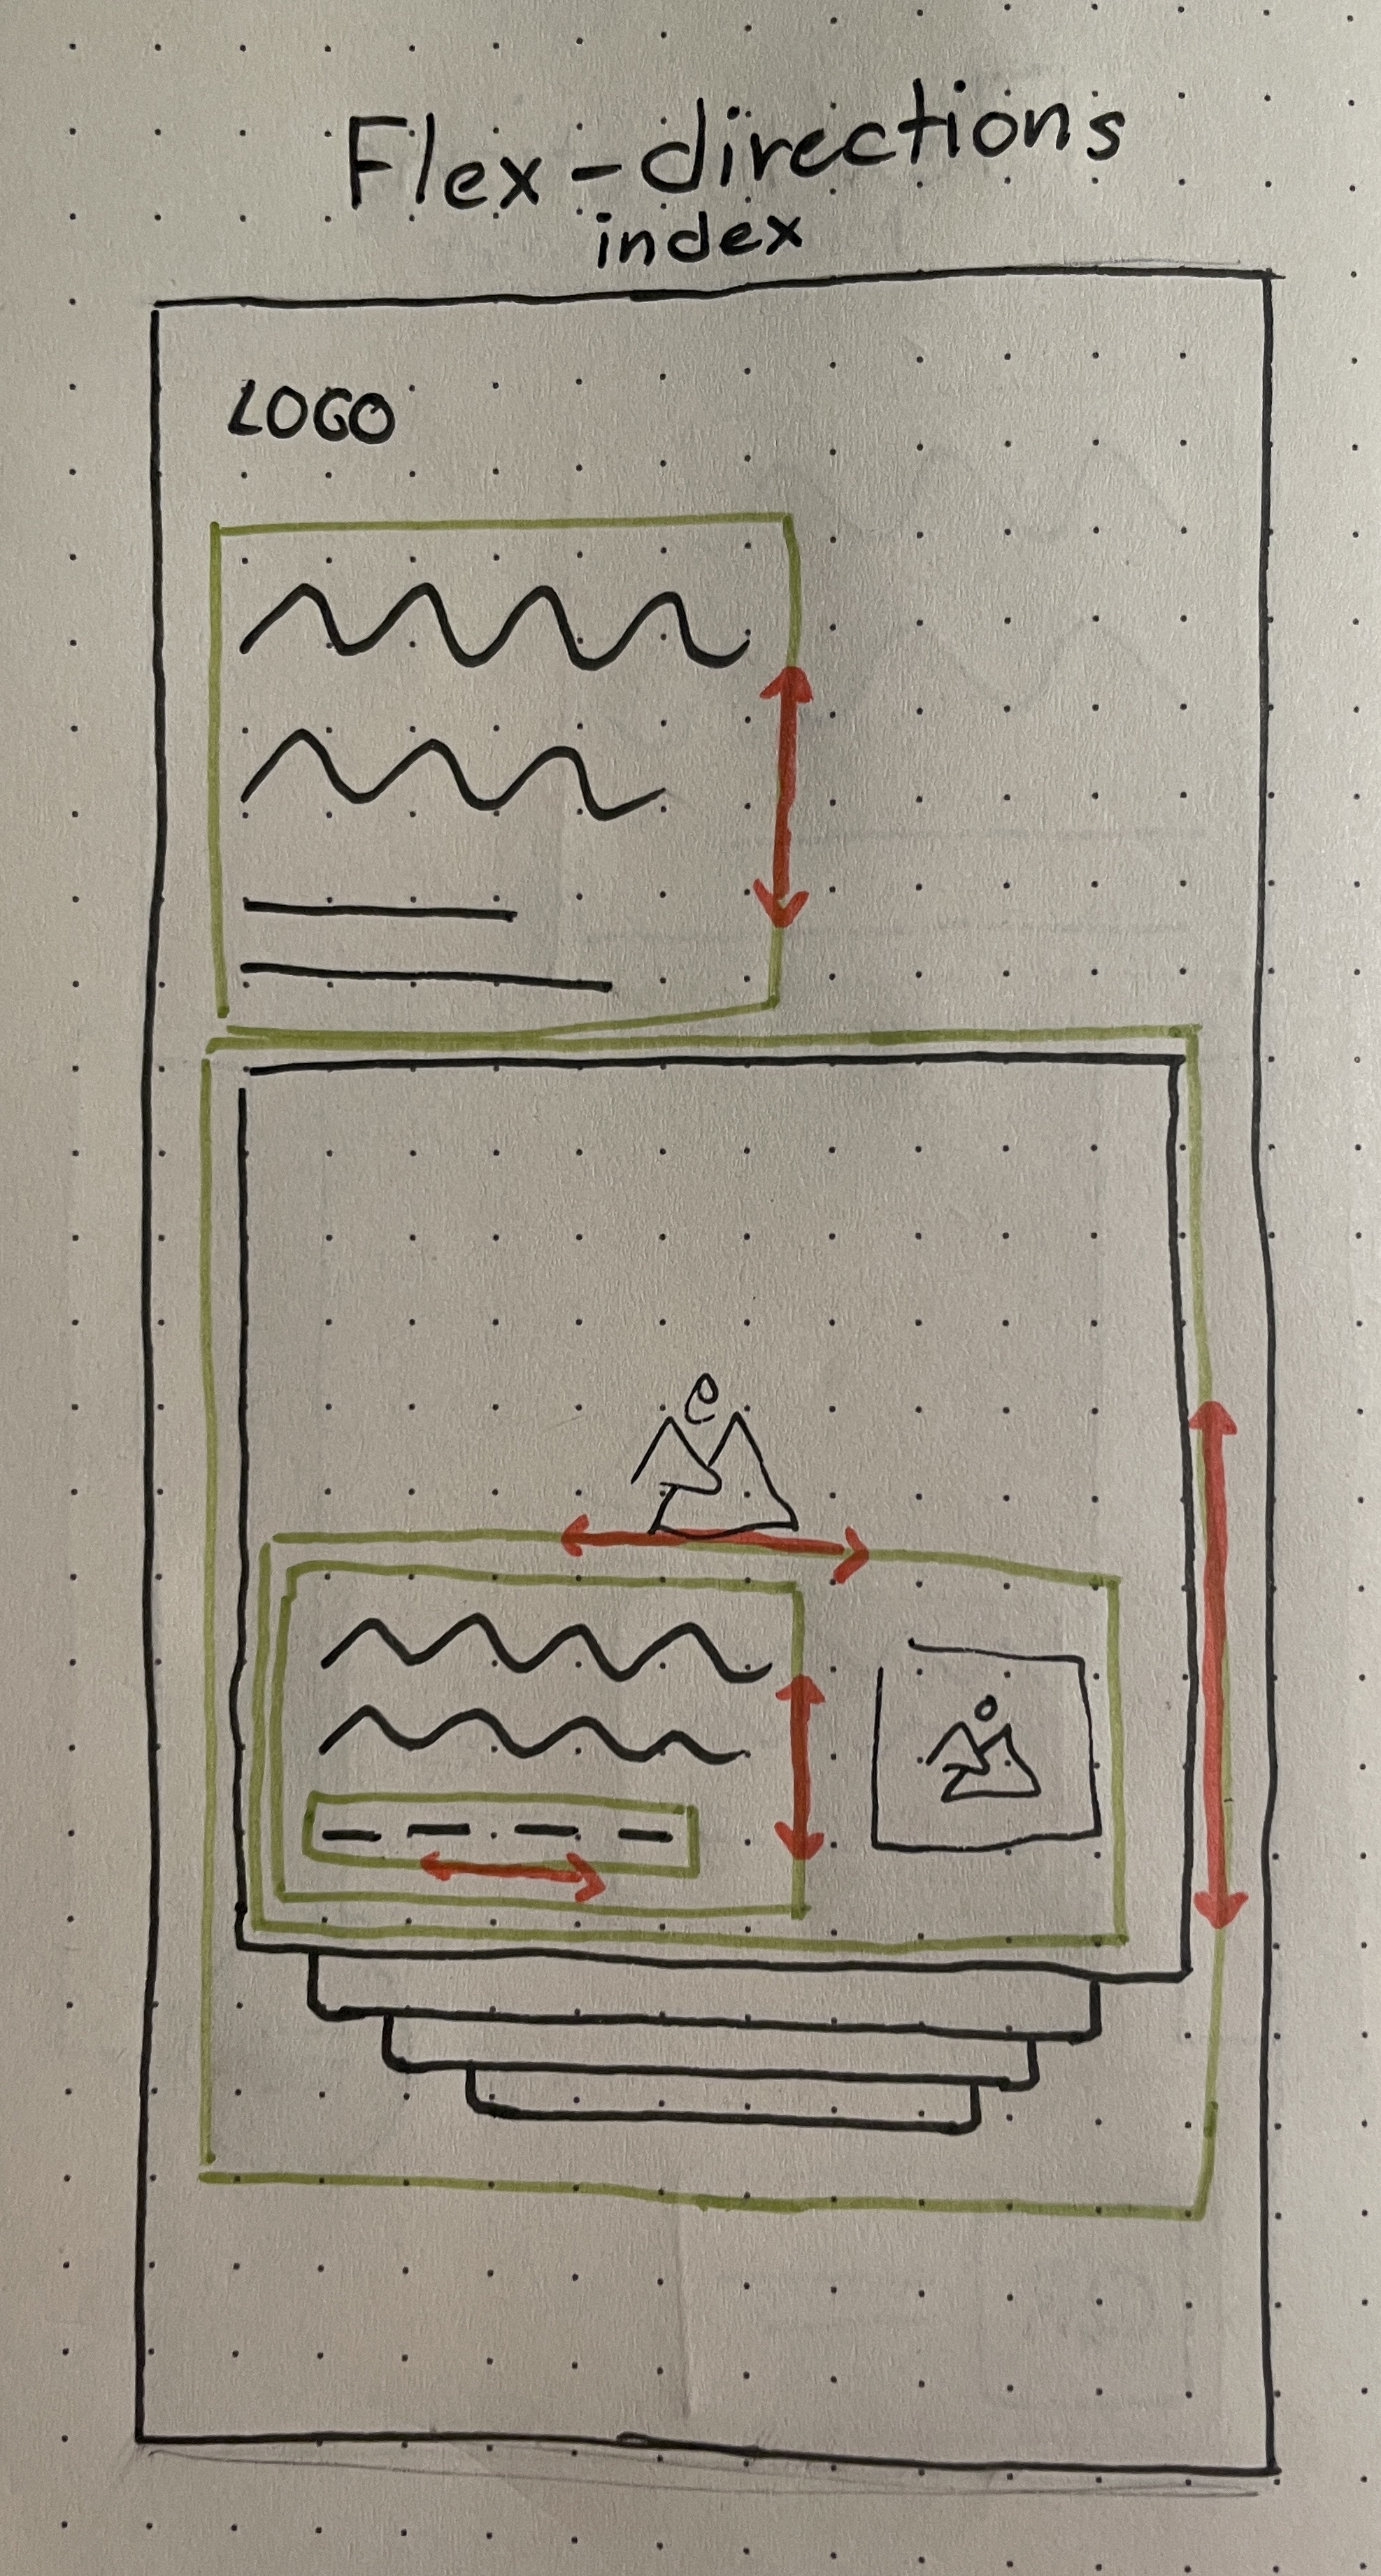 Flex-directions
index
LOGO